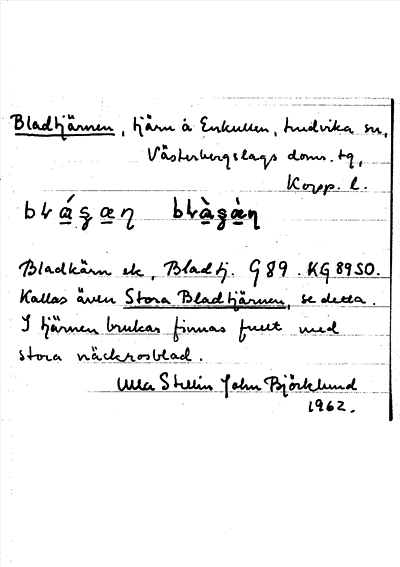 Bladtjärnen, tjärn å Enkullen, Ludvika sn,
Västerbergslags doms. tg,
Kopp. l.
Bladkärn ek, Bladtj. G 89. KG 89 SO.
Kallas även Stora Bladtjärnen, se detta.
I tjärnen brukar finnas fullt med
stora näckrosblad.
Ulla Stellin John Björklund
1962.